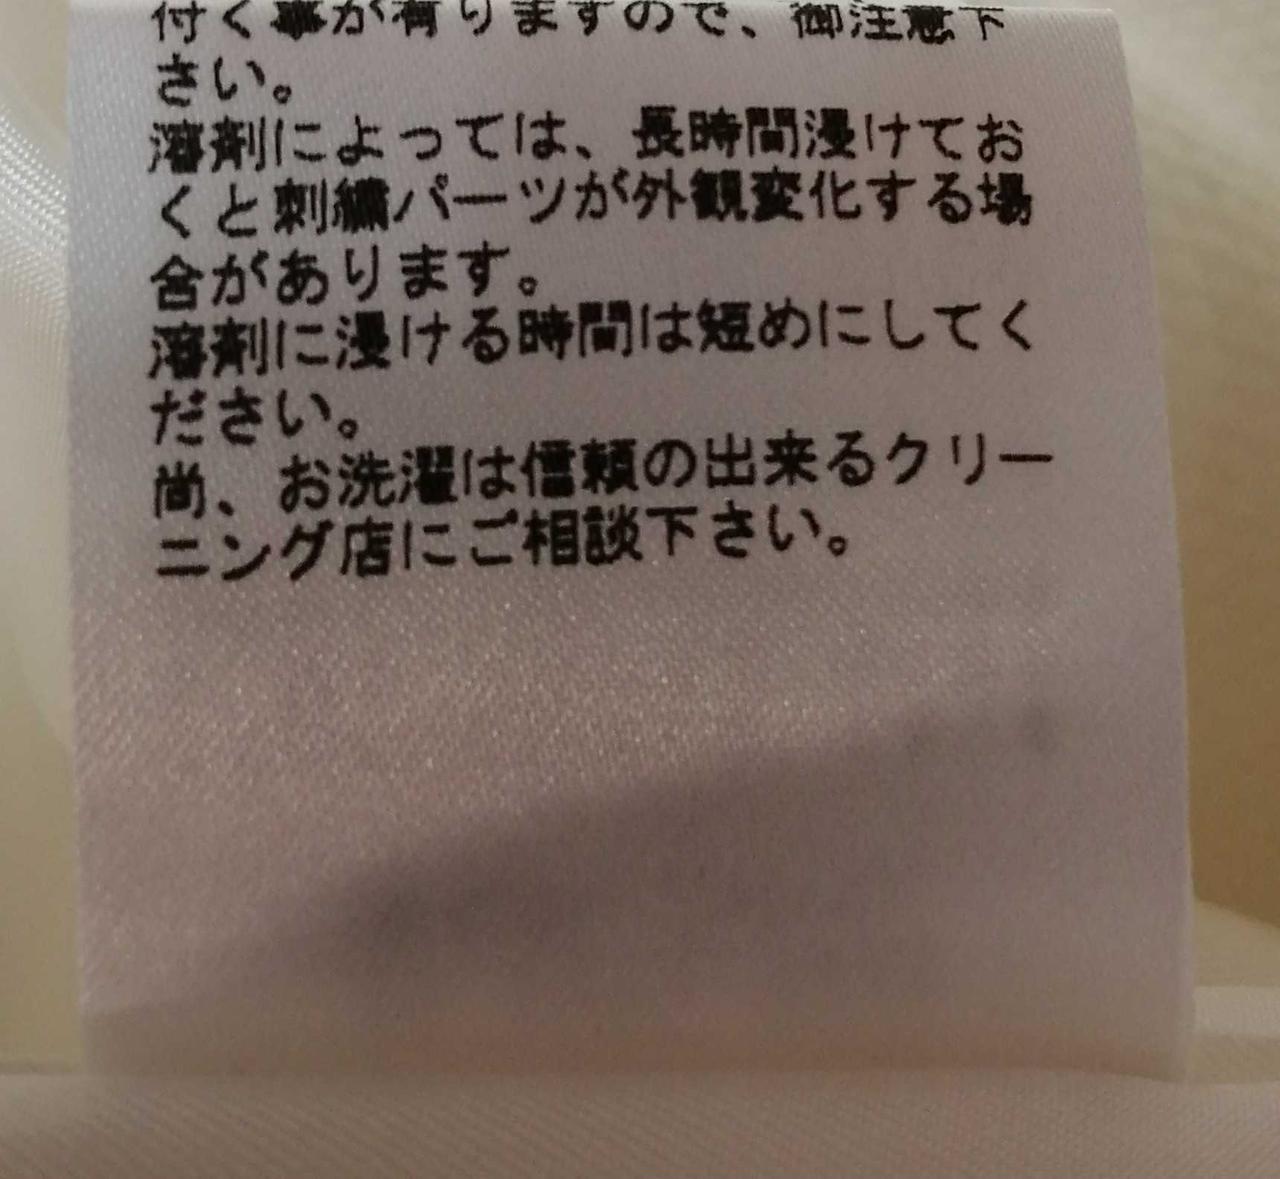 付く事が有りますので、御注意下
さい。
溶剤によっては、長時間浸けてお
くと刺繍パーツが外観変化する場
合があります。
溶剤に浸ける時間は短めにしてく
ださい。
尚、お洗濯は信頼の出来るクリー
ニング店にご相談下さい。